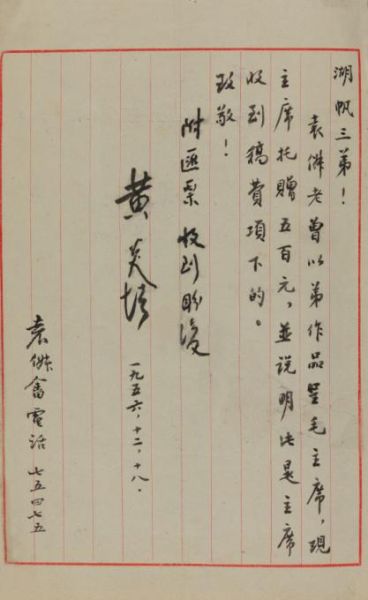 湖帆三弟！
袁俶老曾以弟作品呈毛主席，現
主席托贈五百元，並説明此是主席
收到稿費項下的。
致敬！
附匯票 收到盼復
黄炎培
一九五六，十二，十八．
袁俶畬電話 七五四七五